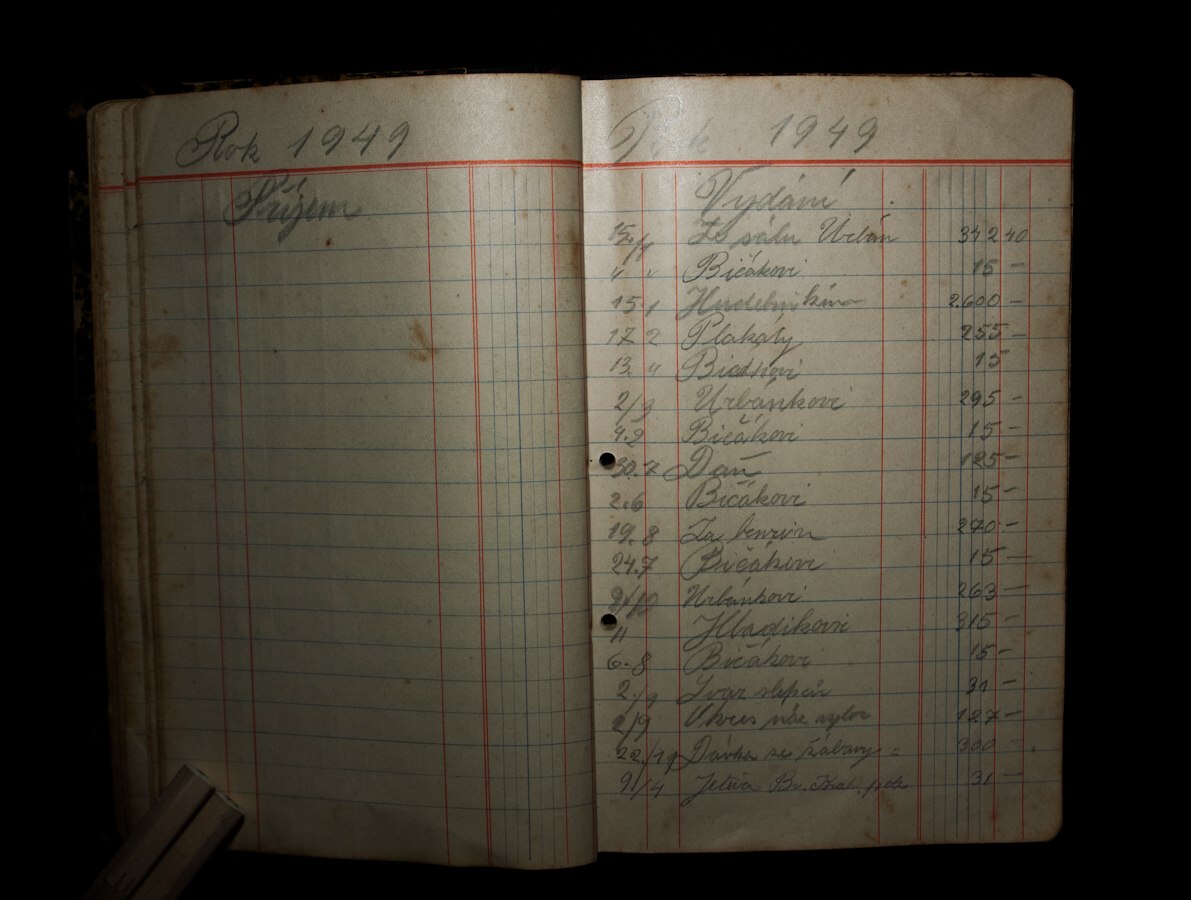 Rok 1949
Příjem
Rok 1949
Vydání
15./1 Za sálu Urbán 342 40
" " Bičákovi 15 —
15 1 Hudebníkům 2.600 —
17 2 Plakáty 255 —
13. " Bičákovi 15
2/3 Urbánkovi 295 —
4.2 Bičákovi 15 —
30.7 Daň 125 —
2.6 Bičákovi 15 —
19.8 Za benzin 270 —
24.7 Bičákovi 15 —
9/10 Urbánkovi 263 —
" Hladíkovi 315 —
6.8 Bičákovi 15 —
2./9 Svaz slepců 31 —
2/9 127 —
22./19 Dávka ze zábavy = 300 —
9./4 31 —